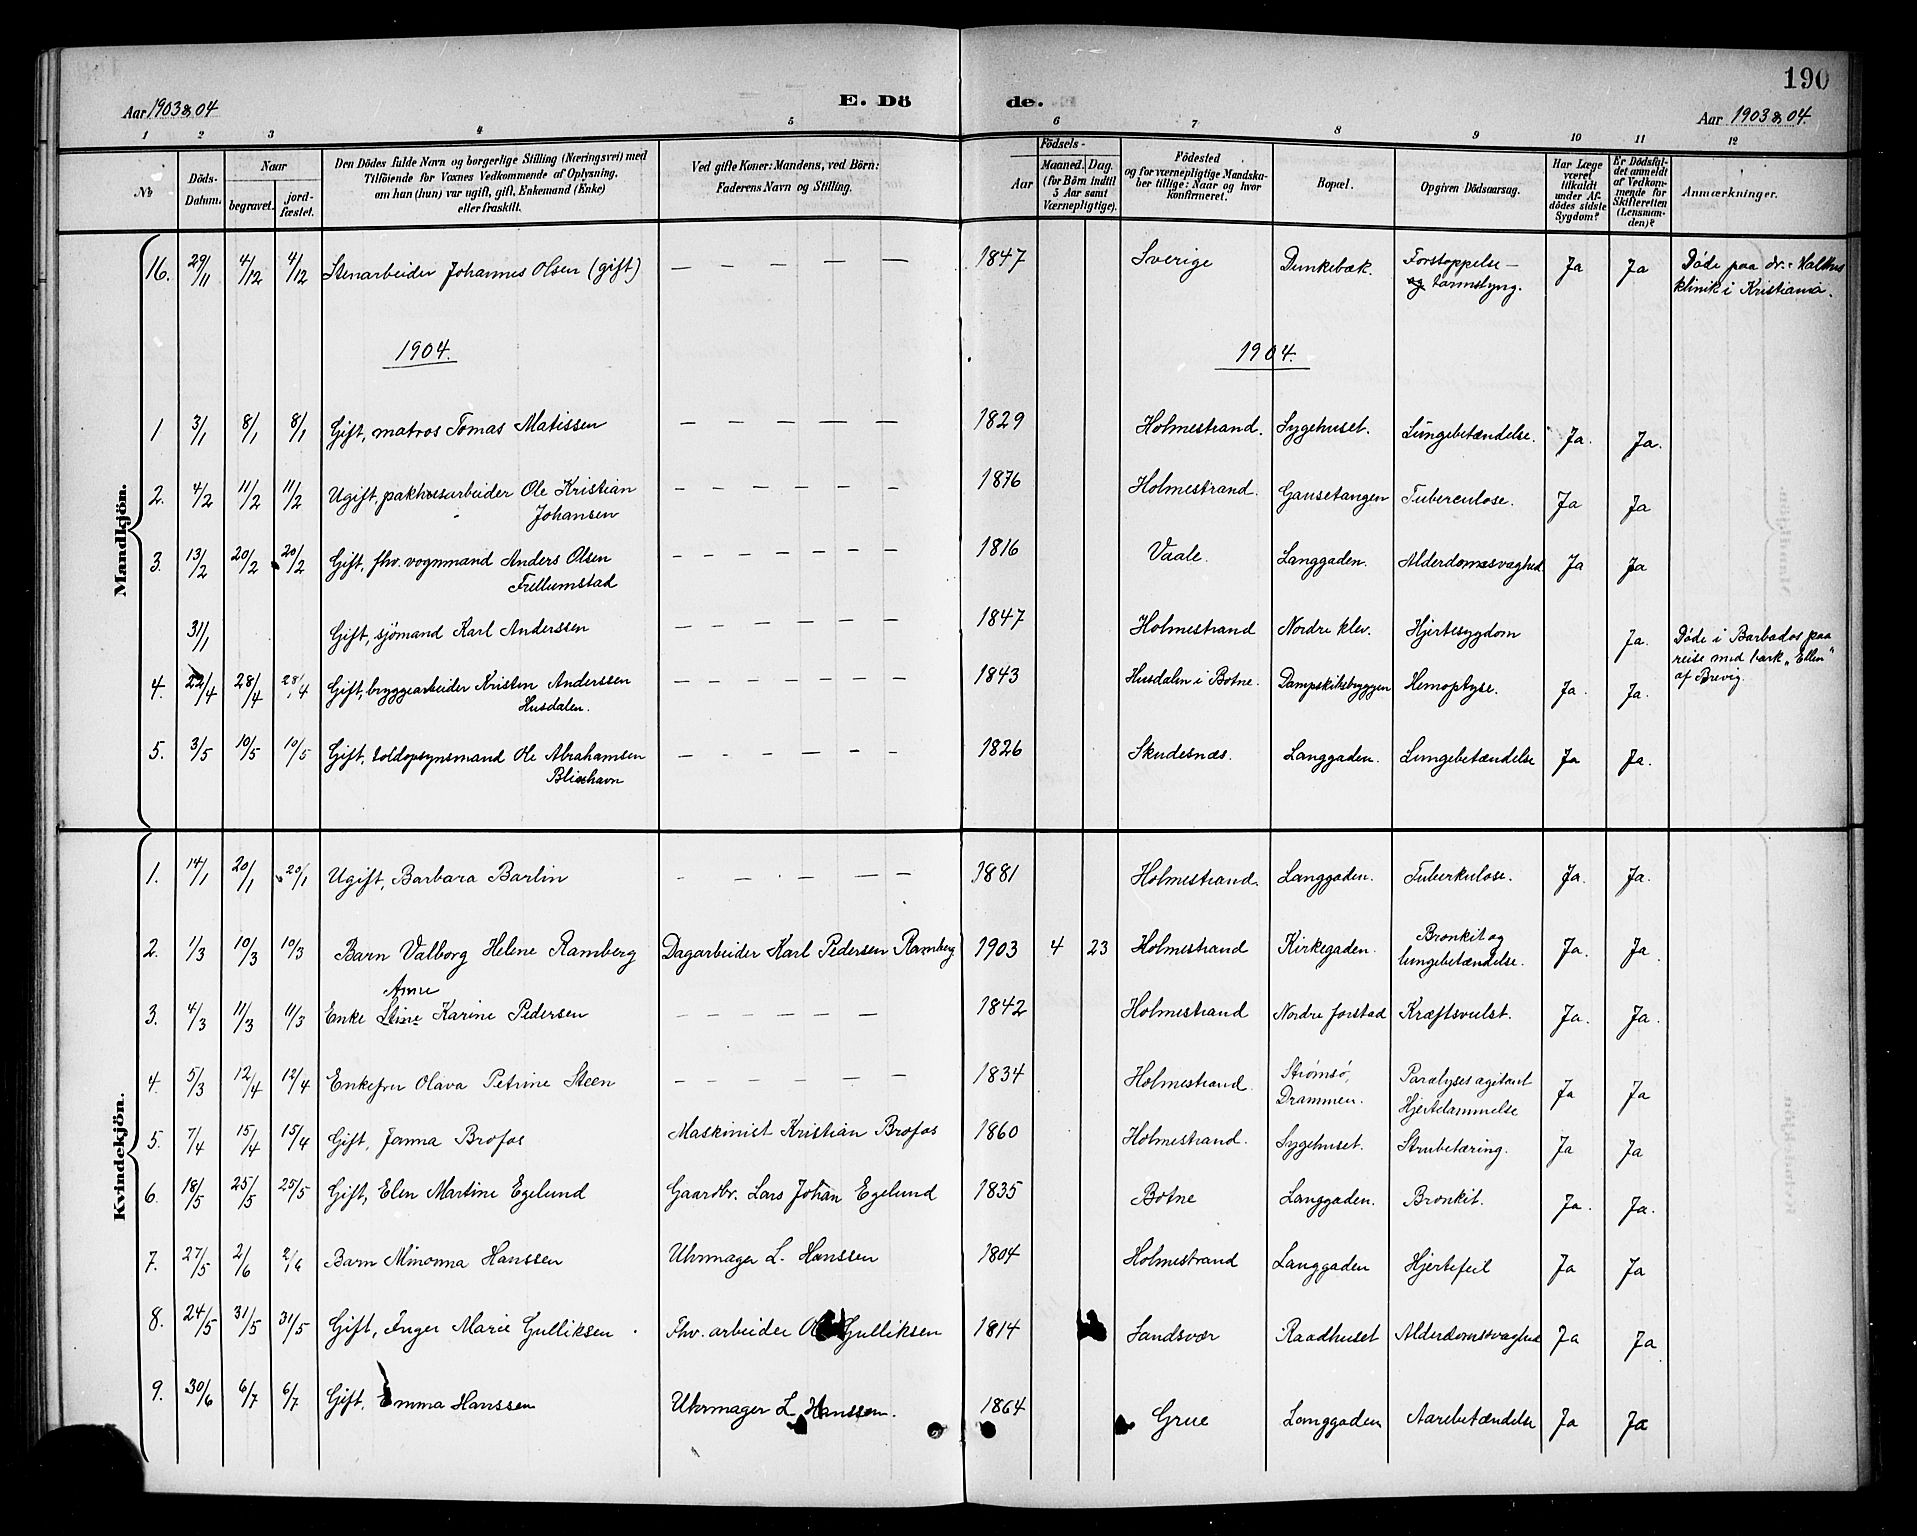 190
Aar 1903 & 04
E. Dö
de.
Aar 1903 & 04.
1 2 3 4 5 6 7 8 9 10 11 12
No
Döds-Datum.
Naar
begravet.
jord-fæstet.
Den Dödes fulde Navn og borgerlige Stilling (Næringsvei) med
Tilföiende for Voxnes Vedkommende af Oplysning,
om han (hun) var ugift, gift, Enkemand (Enke)
eller fraskilt.
Ved gifte Koner: Mandens, ved Börn:
Faderens Navn og Stilling.
Födsels-
Aar
Maaned. Dag.
(for Börn indtil
5 Aar samt
Værnepligtige).
Födested
og for værnepligtige Mandska-
ber tillige: Naar og hvor
konfirmeret.
Bopæl.
Opgiven Dödsaarsag.
Har Læge
været
tilkaldt
under Af-
dödes sidste
Sygdom?
Er Dödsfal-
det anmeldt
af Vedkom-
mende for
Skifteretten
(Lensman-
den)?
Anmærkninger.
Mandkjön.
16. 29/11 4/12 4/12 Stenarbeider Johannes Olsen (gift) — — — — — 1847 Sverige Dunkebæk. Forstoppelse — Ja Ja Döde paa dr.
og tarmslyng. klinik i Kristiania.
1904. 1904.
1 3/1 8/1 8/1 Gift, matros Tomas Matissen — — — — — 1829 Holmestrand. Sygehuset. Lungebetændelse. Ja. Ja.
2. 4/2 11/2 11/2 Ugift, pakhusarbeider Ole Kristian — — — — — 1876 Holmestrand. Gausetangen Tuberculose. Ja Ja
Johansen
3. 13/2 20/2 20/2 Gift, fhv. vognmand Anders Olsen — — — — — — 1816 Vaale. Langgaden. Alderdomssvaghed Ja Ja
Frellumstad
31/1 Gift, sjömand Karl Anderssen — — — — — — 1847 Holmestrand Nordre klev. Hjertesygdom Ja. Döde i Barbados paa
reise med bark „Ellen"
af Brevig.
4. 22/4 28/4 28/4 Gift, bryggearbeider Kristen Anderssen — — — — — — 1843 Husdalen i Botne. Dampskibsbryggen Hemoptyse. Ja. Ja.
Husdalen.
5. 3/5 10/5 10/5 Gift, toldopsynsmand Ole Abrahamsen — - - - - - 1826 Skudesnæs. Langgaden. Lungebetændelse Ja Ja.
Blixhavn
Kvindekjön.
1. 14/1 20/1 20/1 Ugift, Barbara Barlin - — - — — 1881 Holmestrand. Langgaden. Tuberkulose. Ja. Ja.
2. 1/3 10/3 10/3 Barn Valborg Helene Ramberg Dagarbeider Karl Pedersen Ramberg. 1903 4 23 Holmestrand Kirkegaden. Bronkit og Ja. Ja.
lungebetændelse.
Anne
3. 4/3 11/3 11/3 Enke Stine Karine Pedersen — — — — — — 1842 Holmestrand Nordre forstad Kræftsvulst. Ja. Ja.
4. 5/3 12/4 12/4 Enkefru Olava Petrine Steen — — — — — — 1834 Holmestrand. Strømsö, Paralyses agitant Ja Ja
Drammen. Hjertelammelse
5. 7/4 15/4 15/4 Gift, Janna Brofos Maskinist Kristian Brofos 1860 Holmestrand. Sygehuset. Strubetæring. Ja Ja
6. 18/5 25/5 25/5 Gift, Elen Martine Egelund Gaardbr. Lars Johan Egelund 1835 Botne Langgaden. Bronkit. Ja. Ja.
7. 27/5 2/6 2/6 Barn Minonna Hanssen Uhrmager L. Hanssen 1804 Holmestrand Langgaden Hjertefeil Ja Ja
8. 24/5 31/5 31/5 Gift, Inger Marie Gulliksen Fhv. arbeider Gulliksen 1814 Sandsvær Raadhuset Alderdomssvaghed Ja Ja
9. 30/6 6/7 6/7 Gift, Emma Hanssen Uhrmager L. Hanssen. 1864 Grue Langgaden Aarebetændelse Ja Ja